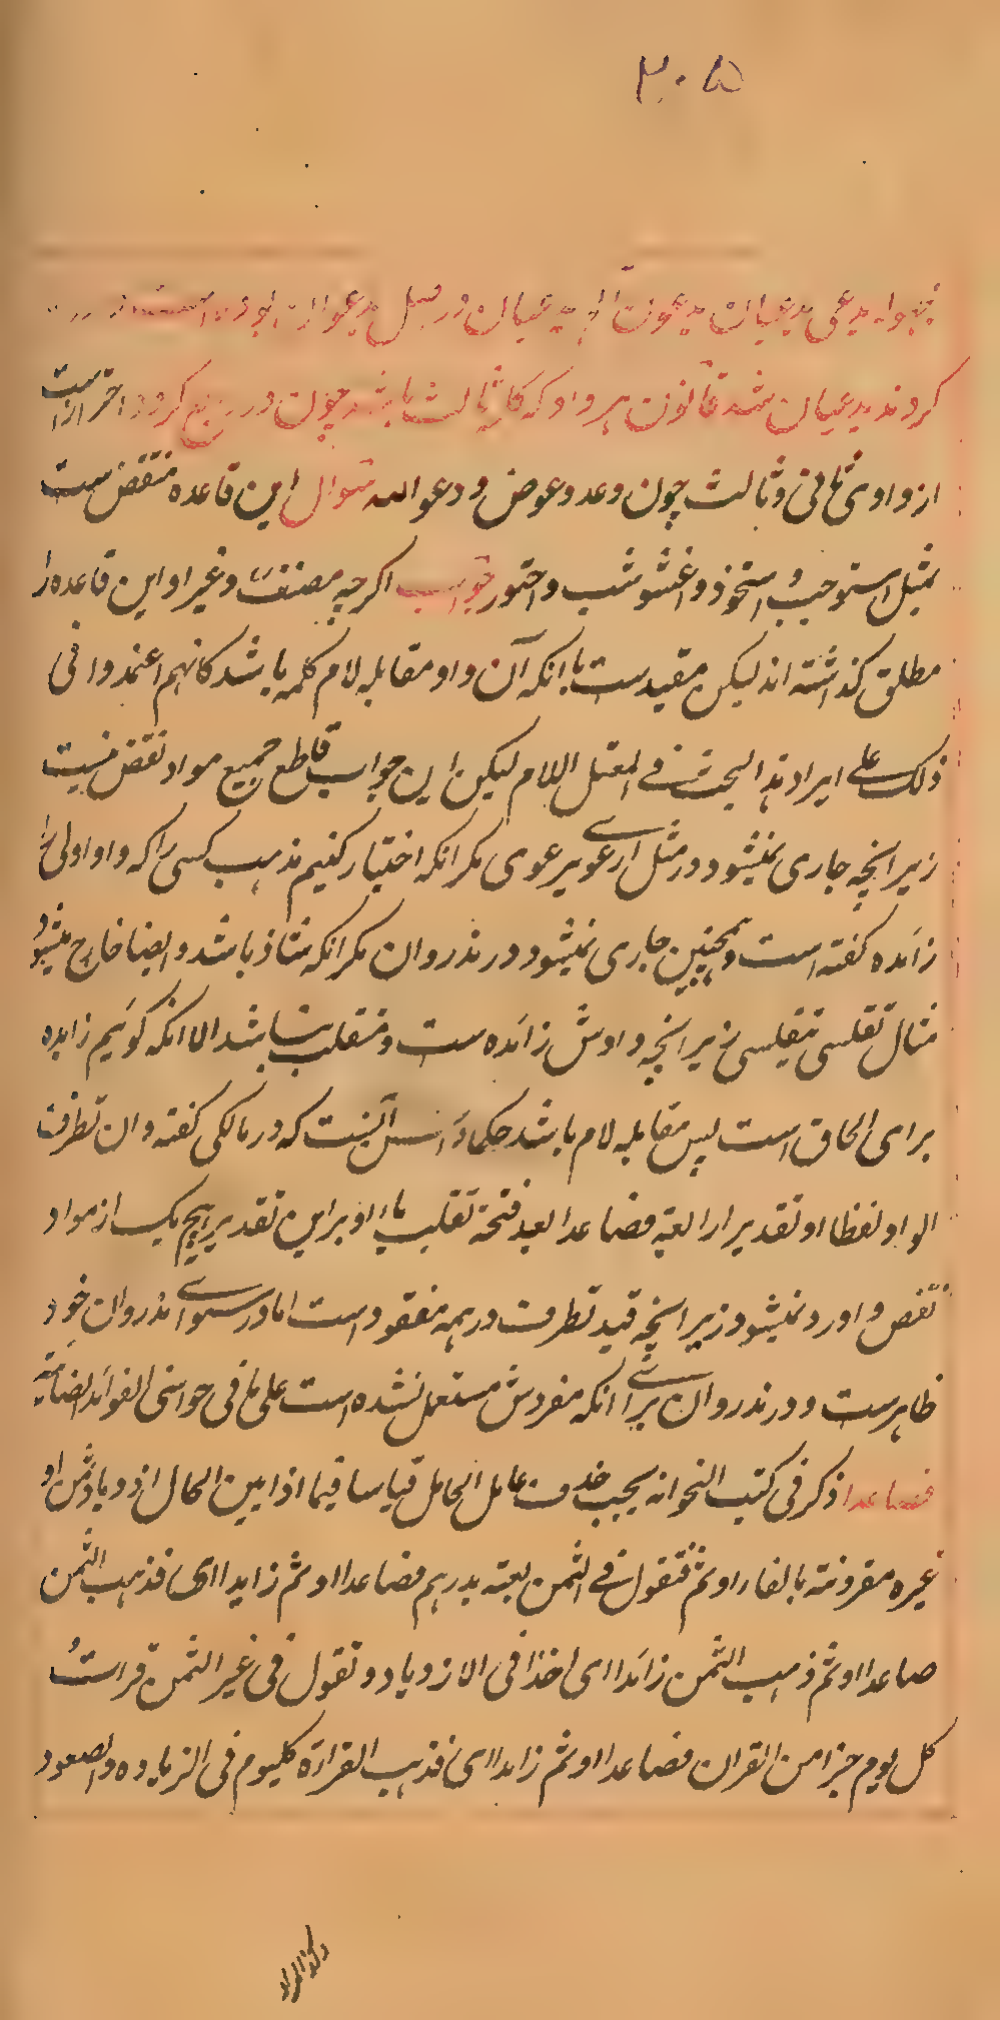 ۲۰۵
یدعی یدعیان یدعون الخ یدعیان در اصل یدعوان بود
کردند یدعیان شد قانون هر واو که کان ثالث باشد چون در رابع کردد احتراز است
از واو ثانی و ثالث چون وعد و عوض و دعوالله سوال این قاعده منتقض ست
بمثل استوجب و استحوذ و اغشوشب و احتور جواب اکرچه مصنف و غیر او این قاعده را
مطلق کذاشته اند لیکن مقیدست بانکه آن واو مقابله لام کلمه باشد کانهم اعتمدوا فی
ذلک علی ایراد هذا البحث فی المعتل اللام لیکن این جواب قاطع جمیع مواد نقض نیست
زیرانچه جاری نمیشود در مثل ارعوی یرعوی مکر انکه اختیار کنیم مذهب کسی را که واو اولی را
زائده کفته است و همچنین جاری نمیشود در مذروان مکر انکه شاذ باشد و ایضا خارج میشود
مثال تقلسی یتقلسی زیرانچه واوش زائده ست و منقلب بیا شد الا انکه کوئیم زایده
برای الحاق است پس مقابله لام باشد حکما و احسن آنست که در مالکی کفته وان تطرفت
الواو لفظا او تقدیرا رابعة فصاعدا بعد فتحة تقلب یاء او براین تقدیر هیچ یک از مواد
نقض وارد نمیشود زیرانچه قید تطرفت در همه مفقود است اما در سوای مذروان خود
ظاهرست و در مذروان برای انکه مفردش مستعمل نشده است علی ما فی حواشی الفوائد الضیائیة
فصاعدا ذکر فی کتب النحو انه یجب حذف عامل الحامل قیاسا فیما اذا بین الحال ازدیاد ثمن او
غیره مقرونة بالفاء او ثم فتقول فی الثمن بعته بدرهم فصاعدا او ثم زایدا ای فذهب الثمن
صاعدا او ثم ذهب الثمن زائدا ای اخذا فی الازدیاد و تقول فی غیر الثمن قراءت
کل یوم جزا من القران فصاعدا او ثم زائدا ای فذهب القراءة کلیوم فی الزیاده و الصعود